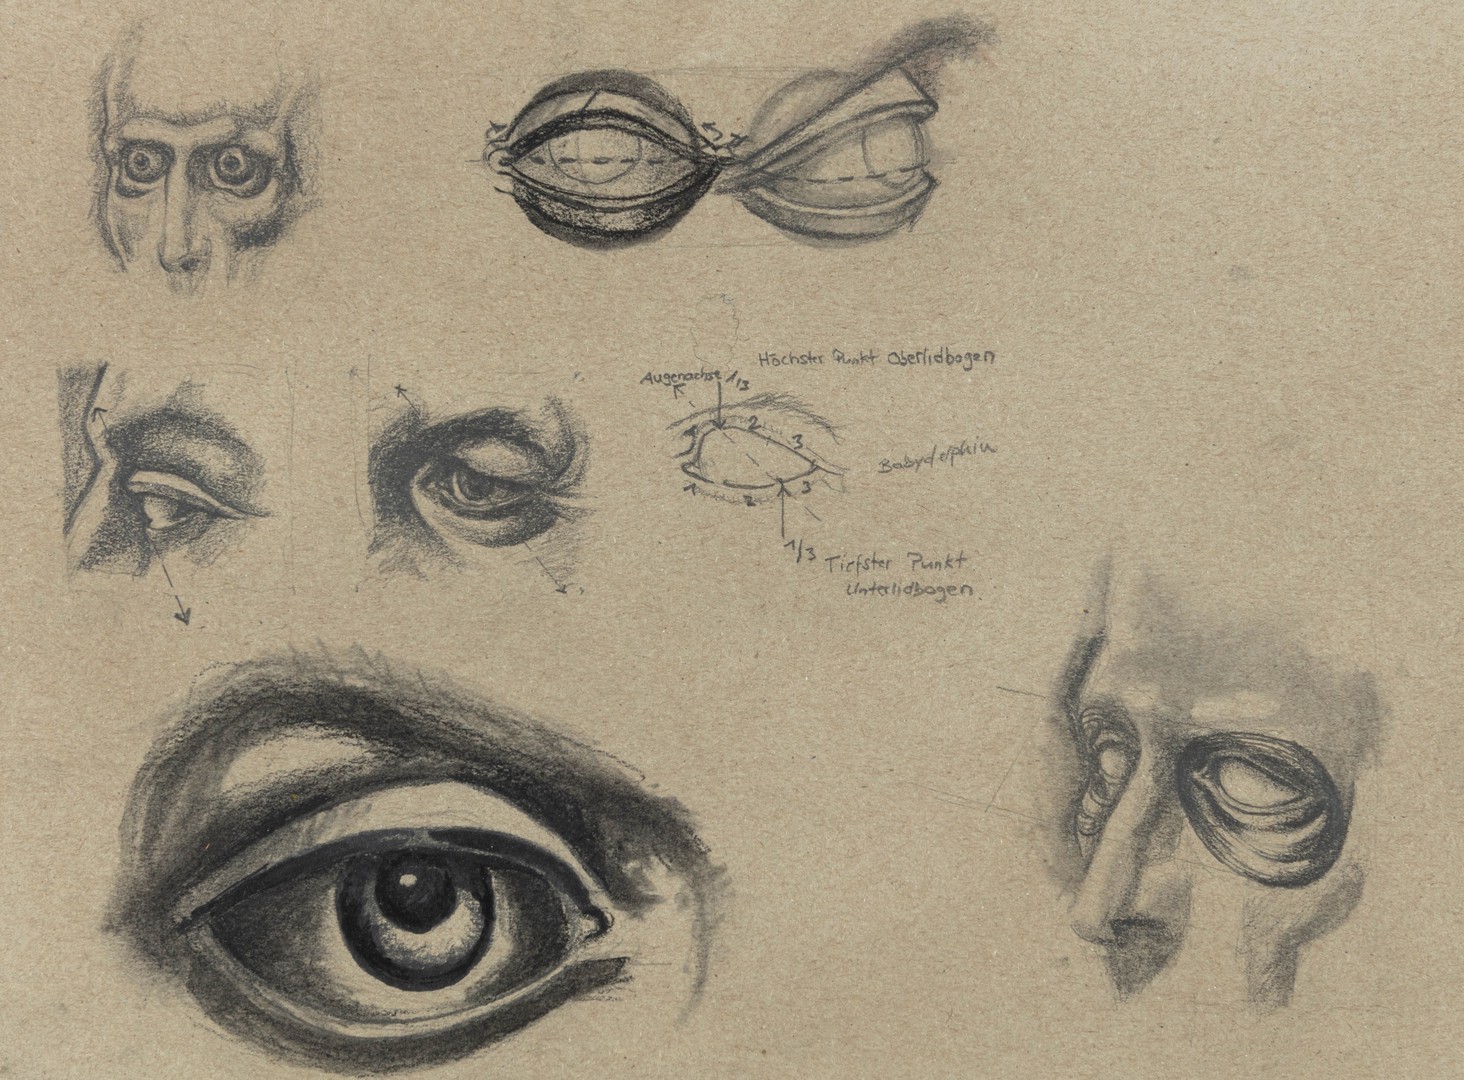 Höchster Punkt Oberlidbogen
Augenachse 1/3
1 2 3
Babydelphin
1 2 3
1/3 Tiefster Punkt
Unterlidbogen